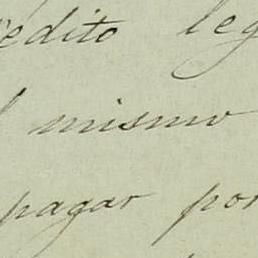 édito leg
l mismo
pagar por